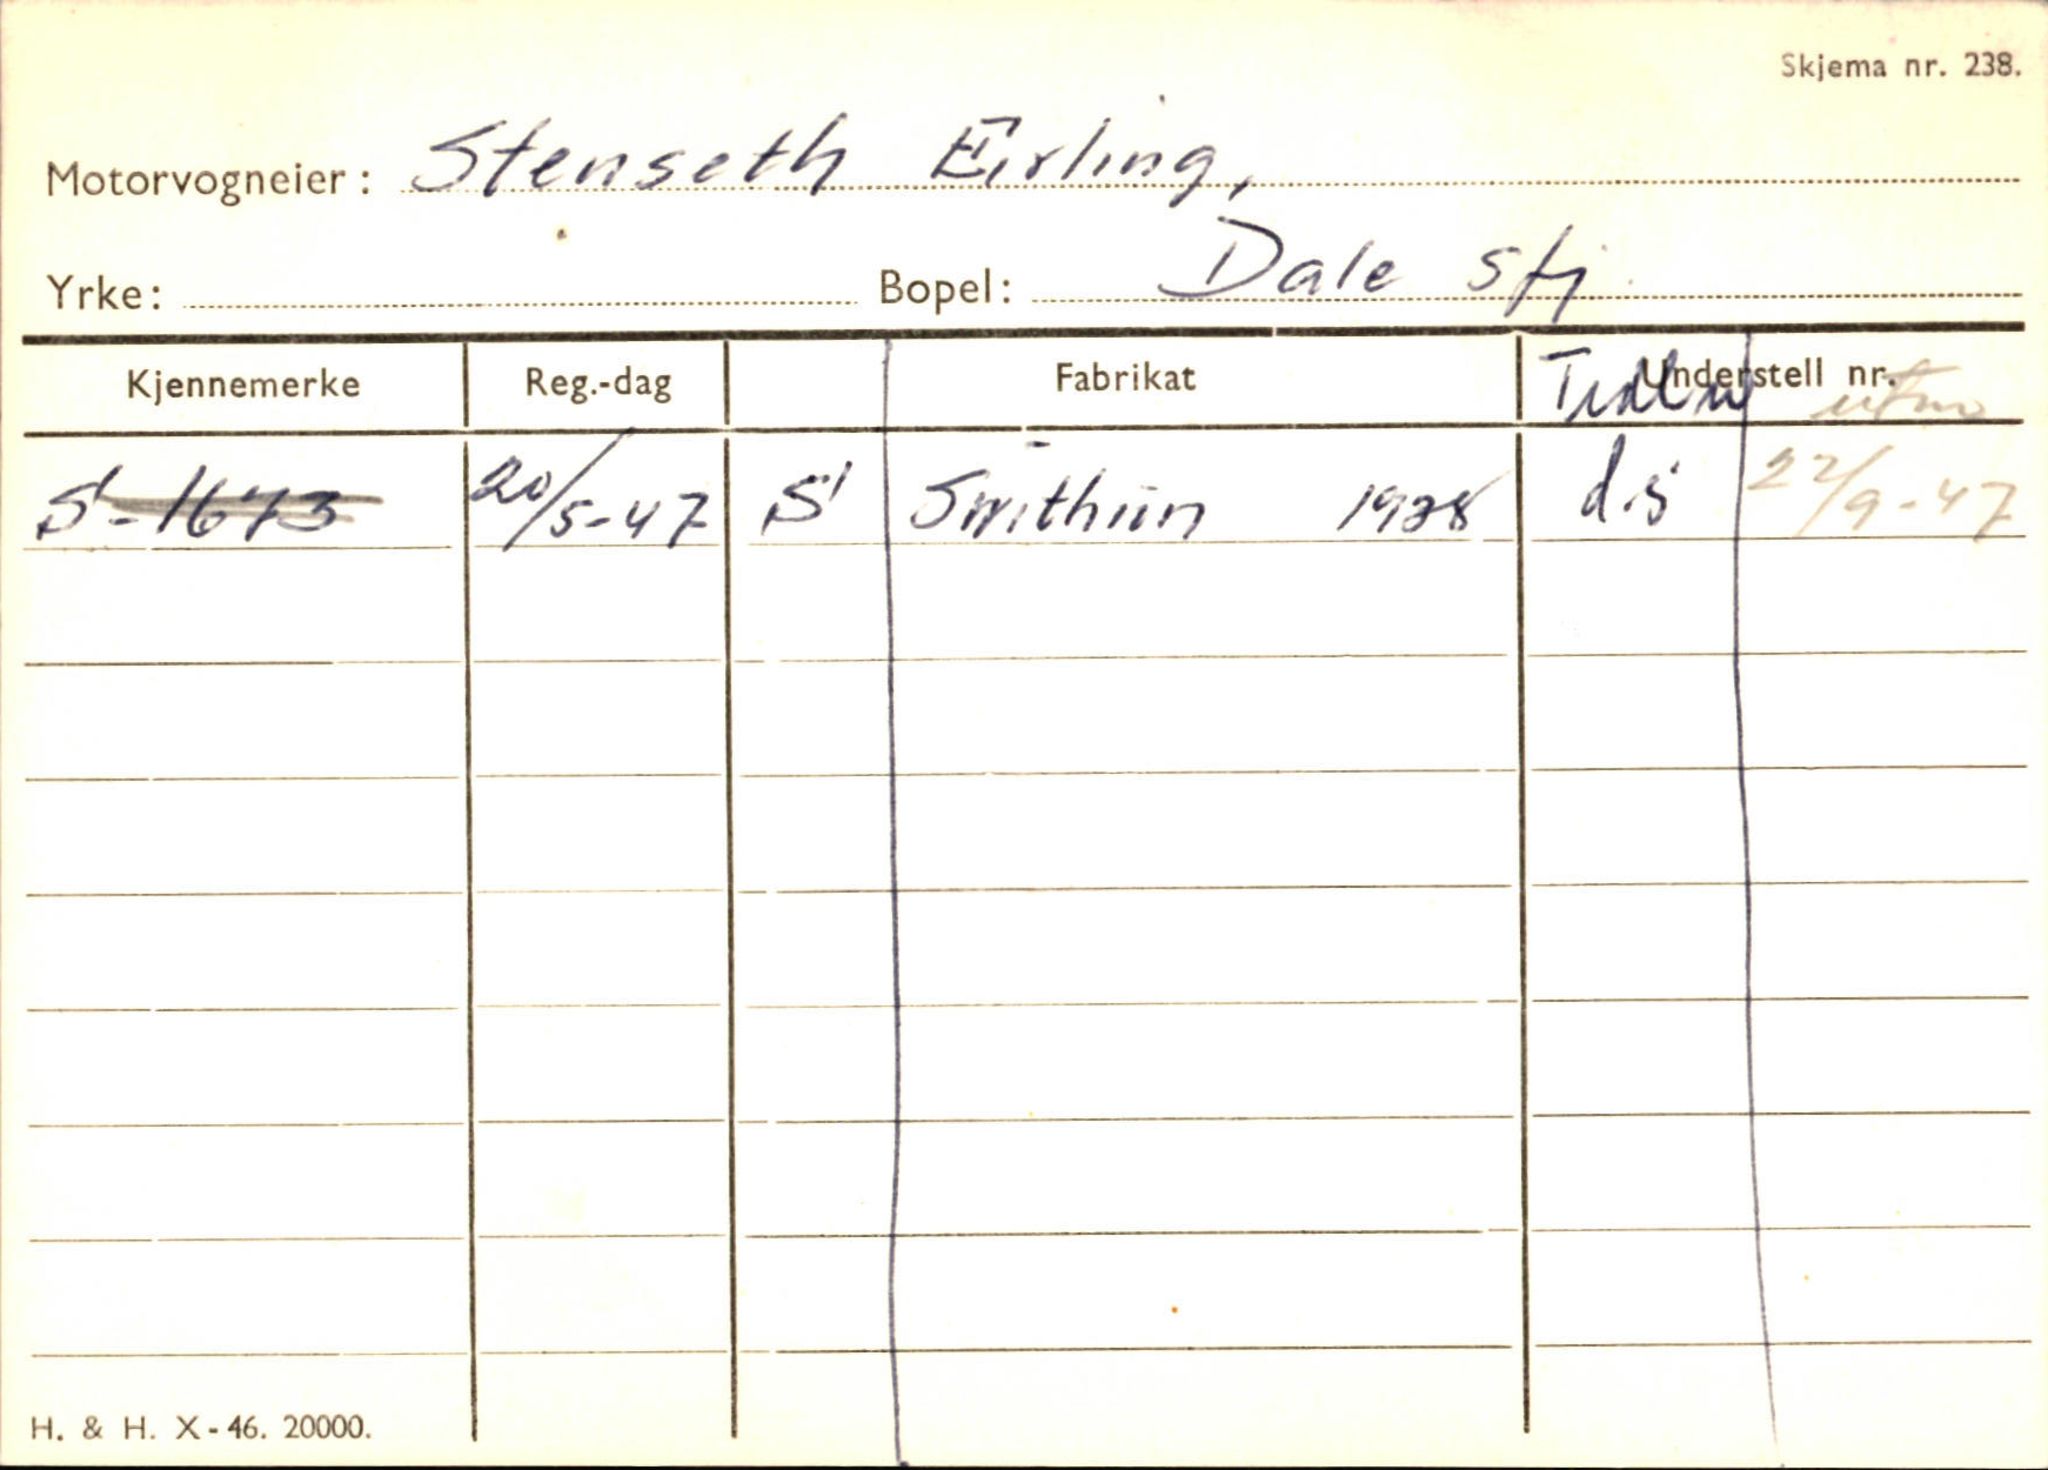 Skjema nr. 238.
Motorvogneier: Stenseth Erling,
Yrke: Bopel: Dale sfj.
Kjennemerke Reg.-dag Fabrikat Understell nr.
S-1673 20/5-47 S Swithun 1928 d.s 22/9-47
H. & H. X-46. 20000.